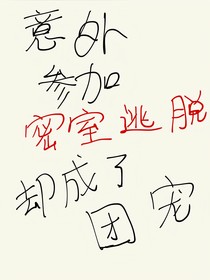 意外
参加
密室逃脱
却成了
团宠